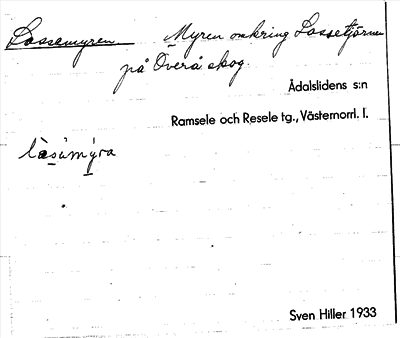 Lossemyren Myren omkring Lossetjärnen
på Överå skog.
Ådalslidens s:n
Ramsele och Resele tg., Västernorrl. l.
Sven Hiller 1933